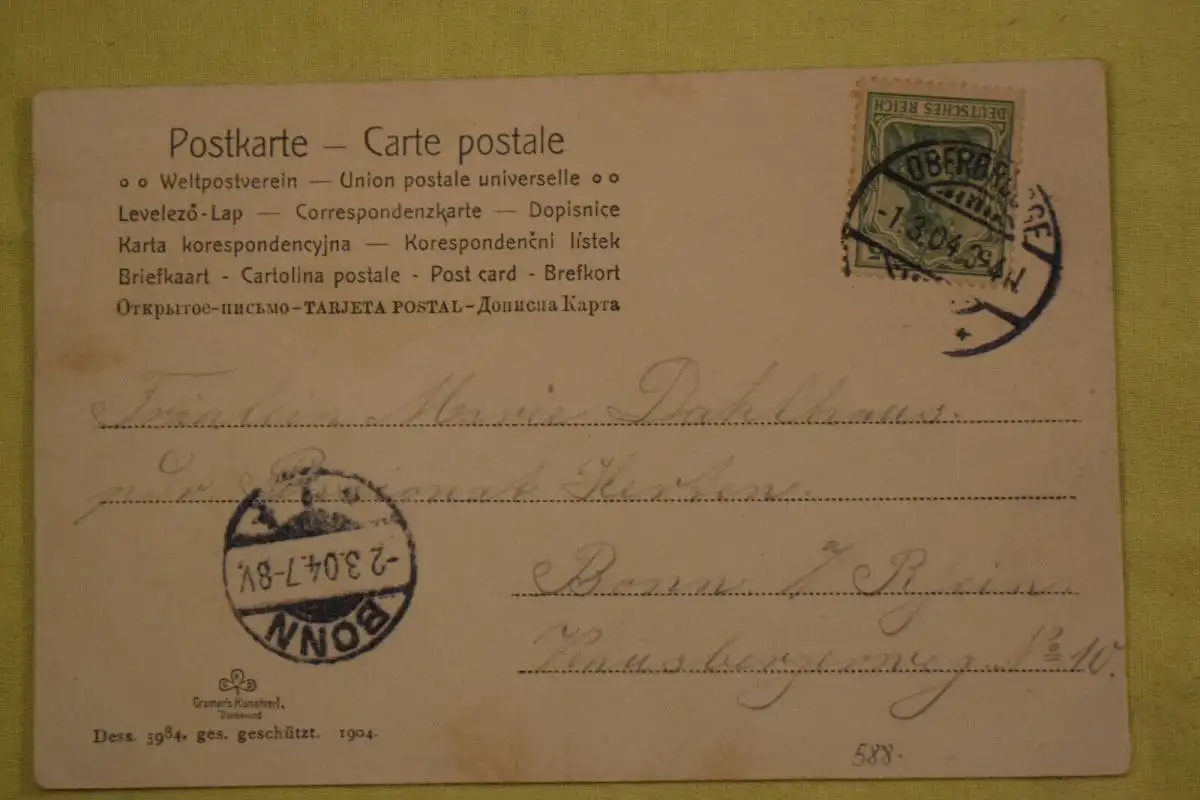 Postkarte – Carte postale
Weltpostverein — Union postale universelle
Levelező-Lap — Correspondenzkarte — Dopisnice
Karta korespondencyjna — Korespondenčni lístek
Briefkaart - Cartolina postale - Post card - Brefkort
Открытое-письмо-TARJETA POSTAL-Дописна Карта
DEUTSCHES REICH
5
OBERBRÜGGE
-1.3.04.
Fräulein Marie Dahlhaus.
pdr Pensionat Herten.
Bonn / Rhein.
Venusbergerweg No 10.
BONN
-2.3.04.7-8V.
Cramers Kunstverl.
Dortmund
Dess. 3984. ges. geschützt. 1904.
588.